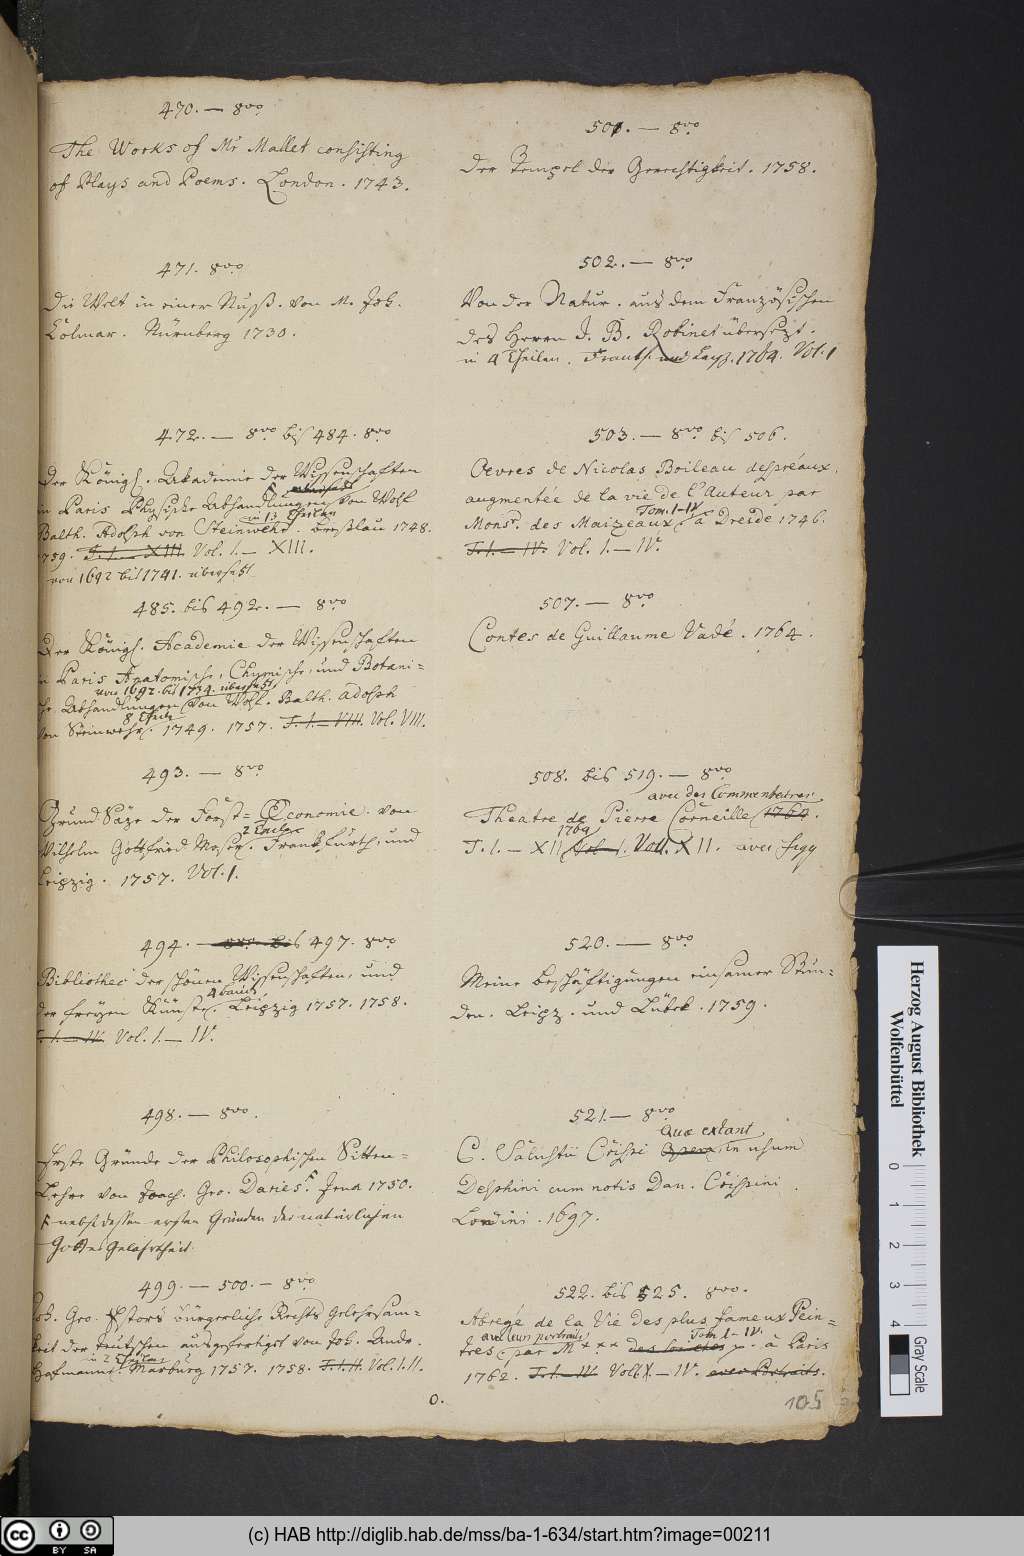 470. — 8vo
The Works of Mr Mallet consisting
of Plays and Poems. London. 1743.
471. 8vo
Die Welt in einer Nuß. von M. Joh.
Colmar. Nürnberg 1730.
472. — 8vo biß 484. 8vo
Der Königl. Akademie der Wissenschaften
in Paris Physische Abhandlungen von Wolf
in 13 Theilen
Balth. Adolph von Steinwehr. Breßlau 1748.
1759. T. I. — XIII. Vol. I. — XIII.
von 1692 bis 1741. übersetzt
485. bis 492. — 8vo
Der Königl. Academie der Wissenschaften
in Paris Anatomische, Chymische, und Botani=
von 1692. bis 1734. übersetzt
sche Abhandlungen von Wolf. Balth. Adolph
8 Theile
von Steinwehr. 1749. 1757. T. I. — VIII. Vol. VIII.
493. — 8vo
Grund Säze der Forst= Oeconomie. von
2 Theile
Wilhelm Gottfried Moser. Franckfurth, und
Leipzig. 1757. Vol. I.
494. — 8vo bis 497. 8vo
Bibliothec der schönen Wissenschaften, und
4 bände
der freyen Künste. Leipzig 1757. 1758.
T. I. — IV. Vol. I. — IV.
498. — 8vo.
Erste Gründe der Philosophischen Sitten=
Lehre von Joach. Geo. Daries. Jena 1750.
nebst dessen ersten Gründen der natürlichen
Gottes Gelahrtheit.
499. — 500. — 8vo
Joh. Geo. Estors bürgerliche Rechts gelehrsam=
keit der Teutschen ausgefertigt von Joh. Andr.
in 2 Theilen
Hofmann. Marburg 1757. 1758. T. I. II. Vol. I. II.
501. — 8vo
Der Tempel der Gerechtigkeit. 1758.
502. — 8vo
Von der Natur. aus dem Französischen
des Herrn J. B. Robinet übersezt.
in 4 Theilen. Franckf. und Leipz. 1764. Vol. I
503. — 8vo biß 506.
Oevres de Nicolas Boileau despréaux,
augmentée de la vie de l'Auteur par
Tom. I-IV
Monsr. des Maizeaux à Dresde 1746.
T. I. — IV. Vol. I. — IV.
507. — 8vo
Contes de Guillaume Vadé. 1764.
508. bis 519. — 8vo
avec des Commentaires
Theatre de Pierre Corneille 1764.
1764
T. I. — XII Vol. I. Vol. XII. avec figg
520. — 8vo
Meine beschäftigungen einsamer Stun=
den. Leipz. und Lübek. 1759.
521. — 8vo
quæ extant
C. Salustii Crispi Opera, in usum
Delphini cum notis Dan. Crispini.
Londini. 1697.
522. bis 525. 8vo.
Abregé de la Vie des plus fameux Pein=
avec leurs portraits Tom. I - IV.
tres, par M *** à Paris
1762. T. I. — IV. Vol. I. — IV. avec Portraits.
0.
105
Herzog August Bibliothek
Wolfenbüttel
0 1 2 3 4
Gray Scale
cc BY SA
(c) HAB http://diglib.hab.de/mss/ba-1-634/start.htm?image=00211